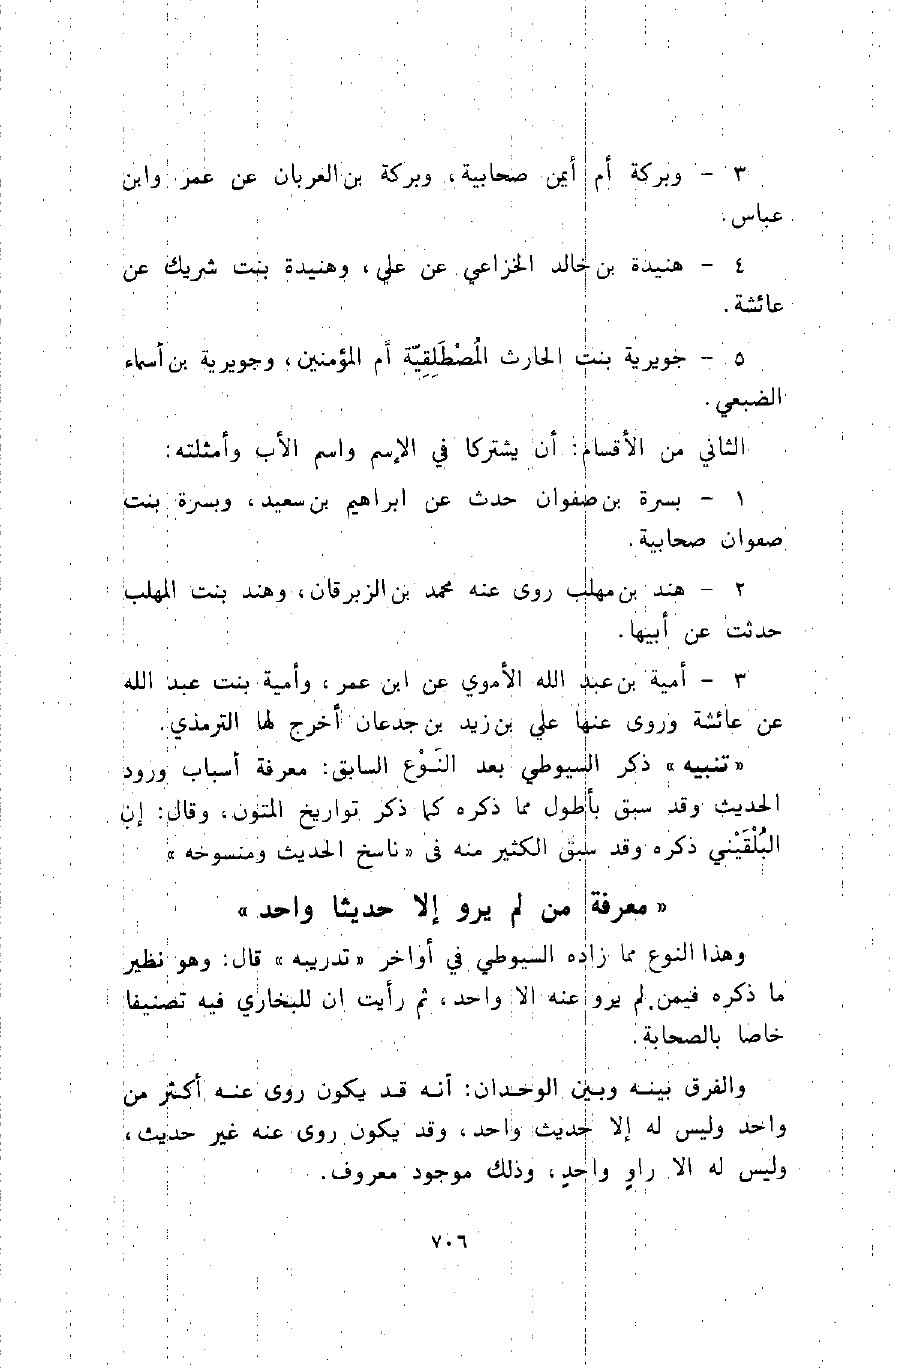 ٣ - وبركة أم أيمن صحابية، وبركة بن العريان عن عمر وابن
عباس.
٤ - هنيدة بن خالد الخزاعي عن علي، وهنيدة بنت شريك عن
عائشة.
٥ - جويرية بنت الحارث المُصْطَلِقِيّة أم المؤمنين، وجويرية بن أسماء
الضبعي.
الثاني من الأقسام: أن يشتركا في الإسم واسم الأب وأمثلته:
١ - بسرة بن صفوان حدث عن ابراهيم بن سعيد، وبسرة بنت
صفوان صحابية.
٢ - هند بن مهلب روى عنه محمد بن الزبرقان، وهند بنت المهلب
حدثت عن أبيها.
٣ - أمية بن عبد الله الأموي عن ابن عمر، وأمية بنت عبد الله
عن عائشة وروى عنها علي بن زيد بن جدعان أخرج لها الترمذي.
« تنبيه » ذكر السيوطي بعد النَوْع السابق: معرفة أسباب ورود
الحديث وقد سبق بأطول مما ذكره كما ذكر تواريخ المتون، وقال: إن
البُلْقَيْني ذكره وقد سبق الكثير منه فى « ناسخ الحديث ومنسوخه »
« معرفة من لم يرو إلا حديثا واحد »
وهذا النوع مما زاده السيوطي في أواخر « تدريبه » قال: وهو نظير
ما ذكره فيمن لم يرو عنه الا واحد، ثم رأيت ان للبخاري فيه تصنيفا
خاصا بالصحابة.
والفرق بينه وبين الوحدان: أنه قد يكون روى عنه أكثر من
واحد وليس له إلا حديث واحد، وقد يكون روى عنه غير حديث،
وليس له الا راوٍ واحدٍ، وذلك موجود معروف.
٧٠٦